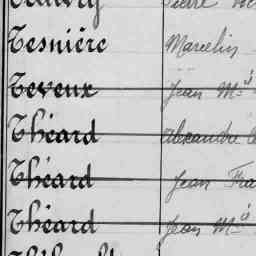 Tesnière Marcelin
Teveux Jean M.
Théard Alexandre
Théard Jean Fra
Théard Jean M.